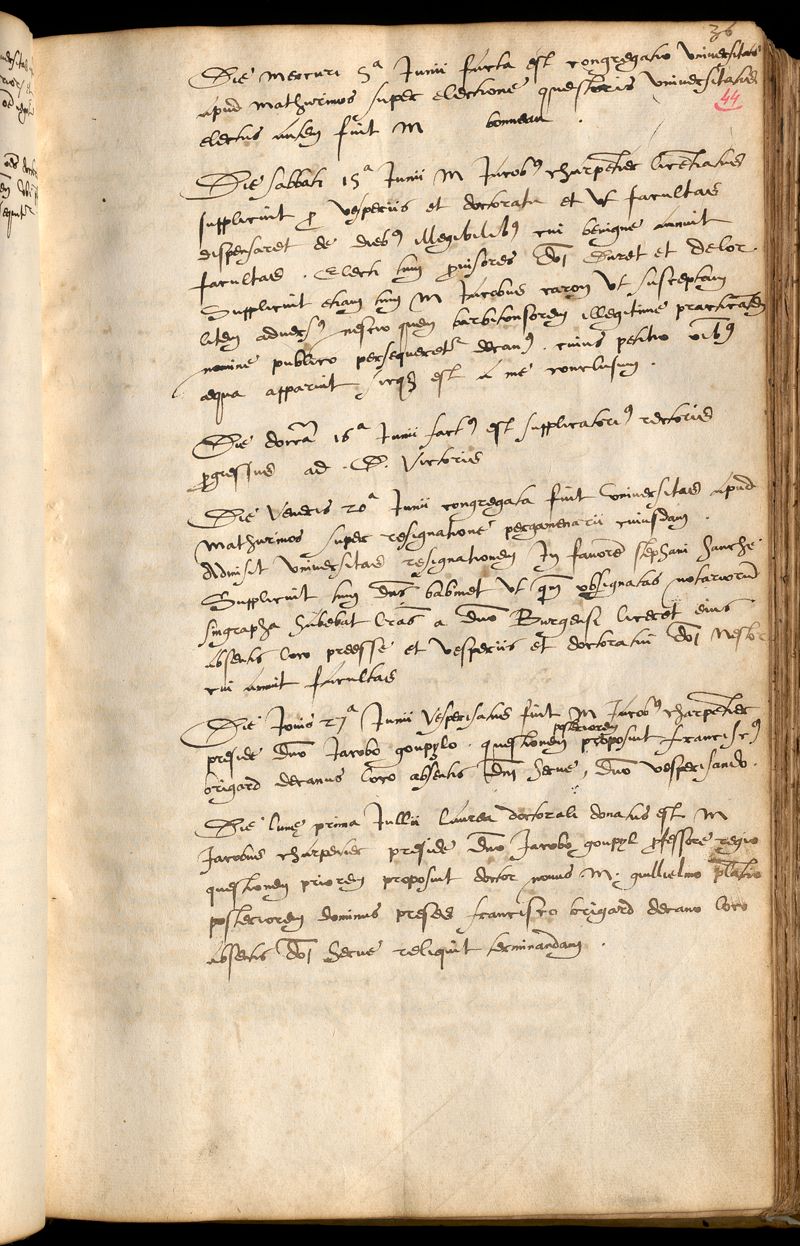 36
44
Die mercuri 5a Junii facta est congregatio universitatis
apud mathurinos super electione questoris universitatis
electus autem fuit M bonneau .
Die sabbati 15a Junii M Jacob9 charpentier licentiatus
supplicuit p vesperiis et doctoratu et vt facultas
dispensaret de dieb9 illegibilib9 cui benigne annuit
facultas . Electi sunt provisores doi Duret et Delor .
Supplicuit etiam tum M Jacobus caron vt susceptam
litem advers9 nescio quem barbitonsorem illegitime practicantem
nomine publico persequeretr decan9 . cuius petitio oib9
aequa apparuit sicq3 est a me conclusum .
Die doica 16a Junii fact9 est supplicatori9 rectoris
pgressus ad . D . Victoris
Die Veneris 20a Junii congregata fuit vniversitas apud
mathurinos super resignatione pergamenarii cuiusdam .
Admisit vniversitas resignationem In favore stephani
Supplicuit tum dns babinet vt qm obsignatas notariorum
singrapha habebat lras a dno Burgensi liceret eius
absentis loco preesse et vesperiis et doctoratui doi
cui annuit facultas
Die Jovis 27a Junii vesperisatus fuit M Jacob9 charpentier
preside dno Jacobo goupylo . questionem posteriorem proposuit francisc9
brigard decanus loco absentis dni herve , dno vesperisando .
Die lune prima Jullii laurea doctorali donatus est M
Jacobus charpentier preside dno Jacobo goupyl pfessore regio
questionem priorem proposuit doctor novus M . guillielmo
posteriorem dominus preses francisco brigard decano loco
absentis doi herve reliquit terminandam .